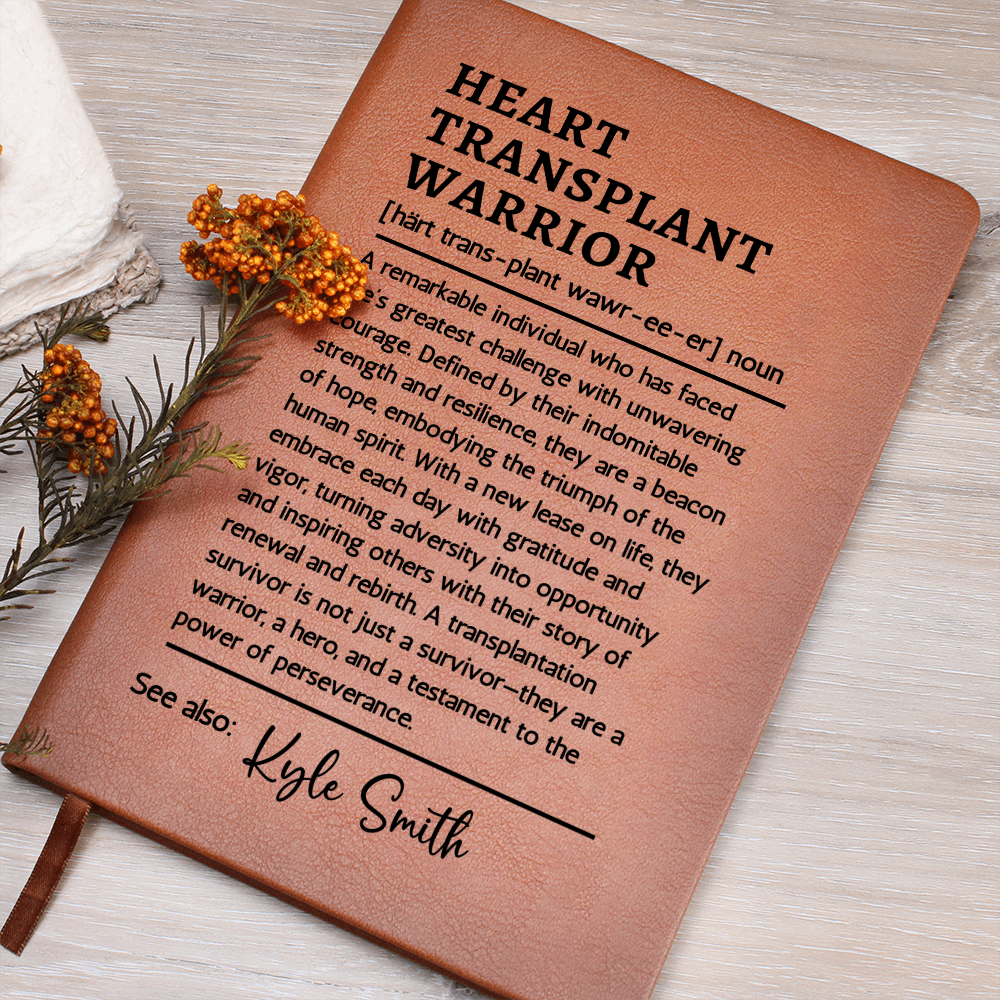 HEART
TRANSPLANT
WARRIOR
[härt trans-plant wawr-ee-er] noun
A remarkable individual who has faced
's greatest challenge with unwavering
courage. Defined by their indomitable
strength and resilience, they are a beacon
of hope, embodying the triumph of the
human spirit. With a new lease on life, they
embrace each day with gratitude and
vigor, turning adversity into opportunity
and inspiring others with their story of
renewal and rebirth. A transplantation
survivor is not just a survivor—they are a
warrior, a hero, and a testament to the
power of perseverance.
See also: Kyle Smith